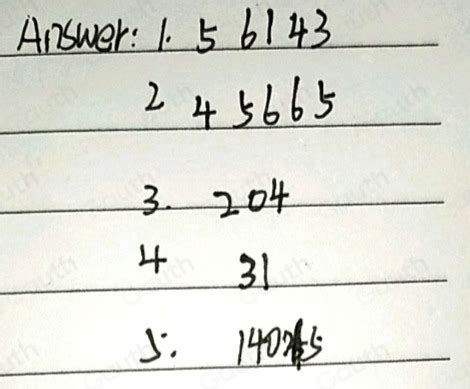 Answer: 1. 5 6143
2 4 5665
3. 204
4 31
5.